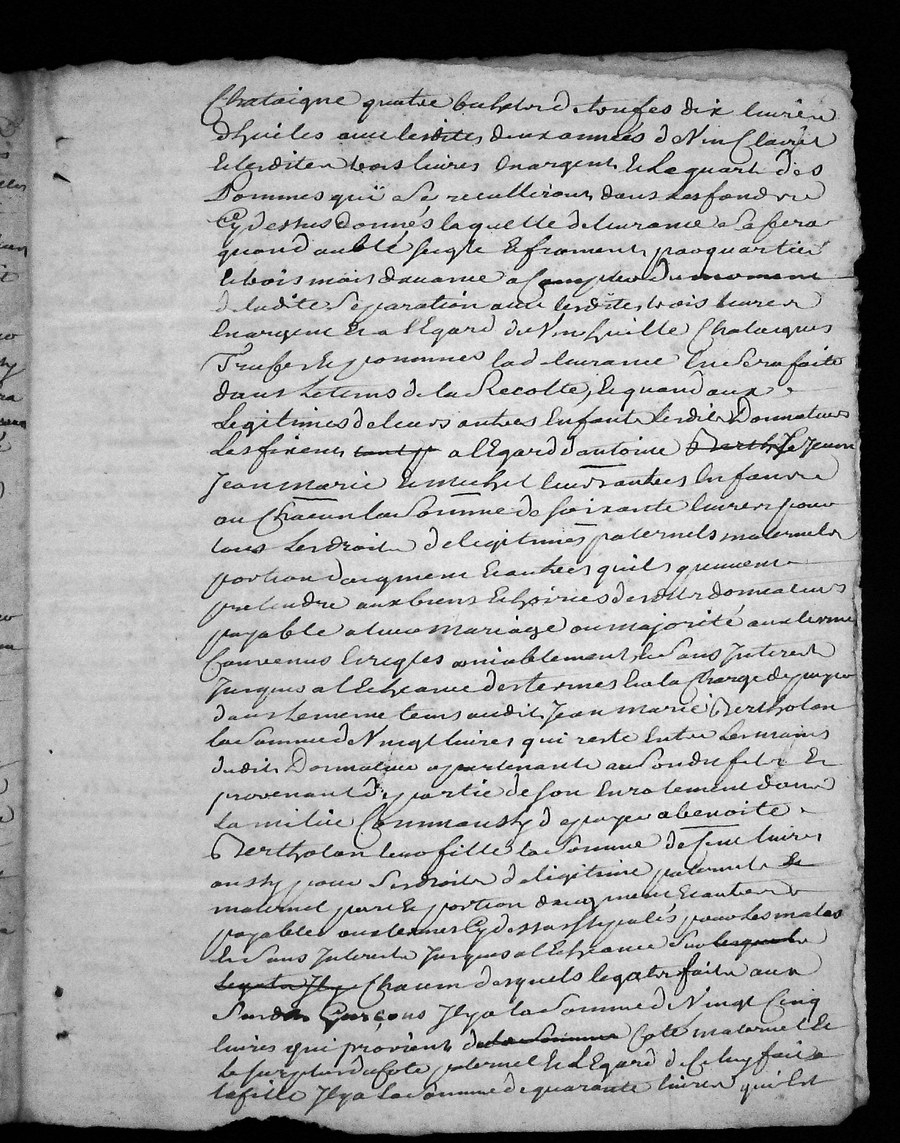 Chataigne quatre de trufes dix livres
d'huille avec lesdites deux années de Vin Clairet
et lesdites trois livres en argent et le quart des
Pommes qui se recullirons dans les fonds
Cydessus donnés laquelle delivrance se fera
quand au blé seigle et froment par quartié
et trois mois d'avance a compter du moment
de ladite Separation avec lesdites trois livres
en argent et a l'Egard du Vin huille Chataignes
Trufes et pommes la delivrance en sera faite
dans le tems de la Recolte, et quand aux
Legitimes de leurs autres Enfants lesdits Donnateurs
Les fixent a l'Egard d'antoine le jeune
Jean marie et michel leurs autres Enfans
a Chacun la Somme de soixante livres pour
tous les droits de legitimes paternels maternels
portion d'augment et autres qu'ils peuvent
pretendre aux biens et hoiries desdits donnateurs
payable a leur mariage ou majorité aux termes
Convenus et reglés amiablement et Sans Interets
Jusques a l'Echeance des termes et a la Charge de payer
dans le meme tems audit Jean marie Bertholon
la Somme de Vingt livres qui reste Entre les mains
dudit Donnateur apartenante au Sondit fils et
provenant de partie de son Enrolement dans
la milice Comm'aussy de payer a benoite
Bertholon leur fille la Somme de livres
aussy pour Ses droits de legitime paternels et
maternel part et portion d'augment et autres
payables aux termes Cydessus stipulés pour les males
et Sans Interets Jusques a l'Echeance Sur lesquels
legats Il y a Chacun desquels legats faits aux
Susdits Garçons Il y a la Somme de Vingt Cinq
livres qui provient de la Somme Coté maternel et
le surplus du Coté paternel et a l'Egard de Celuy fait a
la fille Il y a la Somme de quarante livres qui Est